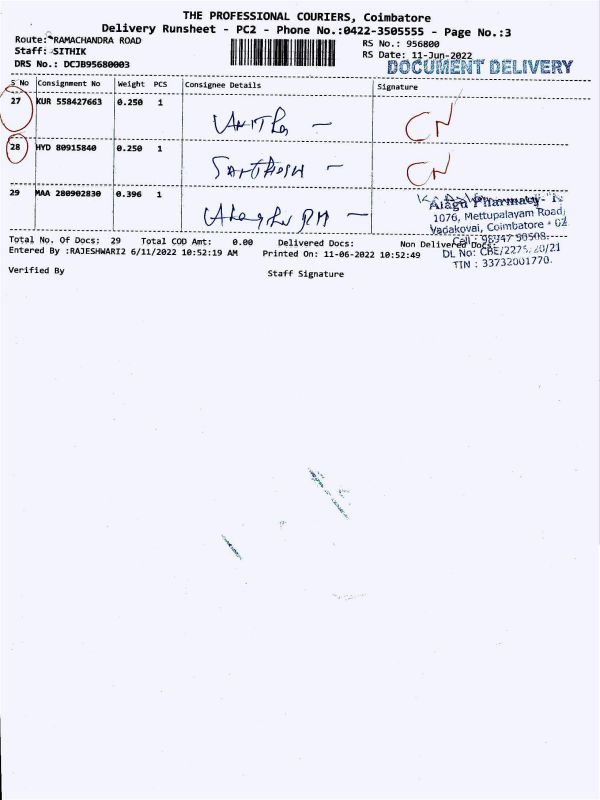 THE PROFESSIONAL COURIERS, Coimbatore
Delivery Runsheet - PC2 - Phone No.:0422-3505555 - Page No.:3
Route: RAMACHANDRA ROAD RS No.: 956800
Staff: SITHIK RS Date: 11-Jun-2022
DRS No.: DCJB95680003 DOCUMENT DELIVERY
S No Consignment No Weight PCS Consignee Details Signature
27 KUR 558427663 0.250 1 CN
28 HYD 80915840 0.250 1 Santhosh - CN
29 MAA 280902830 0.396 1
Alagu Pharmacy
1076, Mettupalayam Road,
Vadakovai, Coimbatore - 02
Total No. Of Docs: 29 Total COD Amt: 0.00 Delivered Docs: Non Delivered Docs:
Entered By :RAJESHWARI2 6/11/2022 10:52:19 AM Printed On: 11-06-2022 10:52:49
DL No: CBE/2275, 20/21
TIN : 33732001770.
Verified By Staff Signature